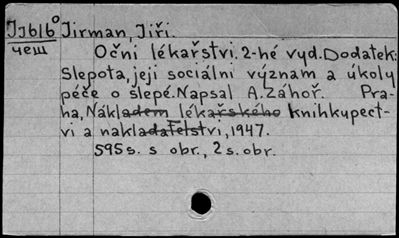 Jjb16° Jirman, Jiří.
чеш
Oční lékařství. 2-hé vyd. Dodatek:
Slepota, její sociální význam a úkoly
péče o slepé. Napsal A. Záhoř. Pra-
ha, Nákladem lékařského knihkupect-
ví a nakladatelství, 1947.
595 s. s obr., 2 s. obr.